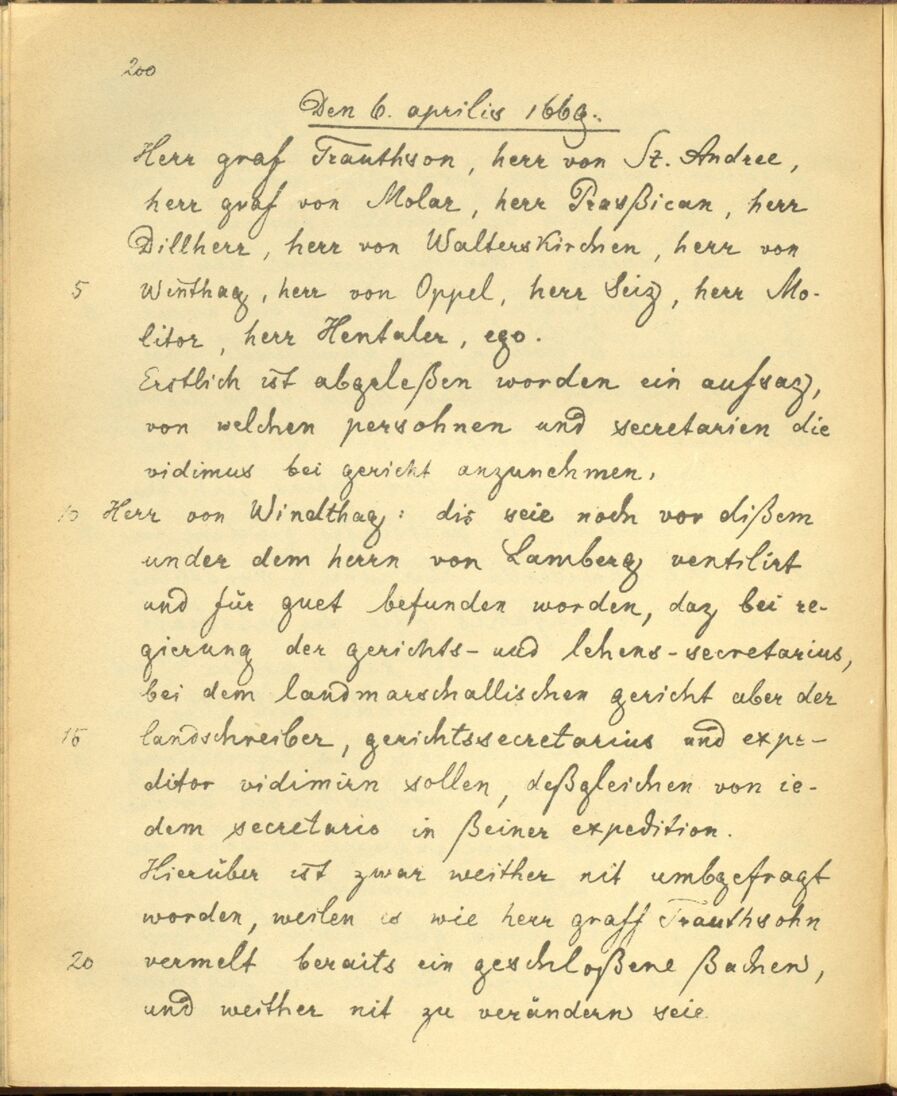 200
Den 6. aprilis 1669.
Herr graf Trauthson, herr von St. Andree,
herr graf von Molar, herr Prasßican, herr
Dillherr, herr von Walterskirchen, herr von
5 Winthag, herr von Oppel, herr Seiz, herr Mo-
litor, herr Hentaler, ego.
Erstlich ist abgeleßen worden ein aufsaz,
von welchen persohnen und secretarien die
vidimus bei gericht anzunehmen.
10 Herr von Windthag: dis seie noch vor dißem
under dem herrn von Lamberg ventilirt
und für guet befunden worden, daz bei re-
gierung der gerichts- und lehens-secretarius,
bei dem landmarschallischen gericht aber der
15 landschreiber, gerichtssecretarius und expe-
ditor vidimirn sollen, deßgleichen von ie-
dem secretario in ßeiner expedition.
Hierüber ist zwar weither nit umbgefragt
worden, weilen es wie herr graff Trauthsohn
20 vermelt beraits ein geschloßene ßachen,
und weither nit zu verändern seie